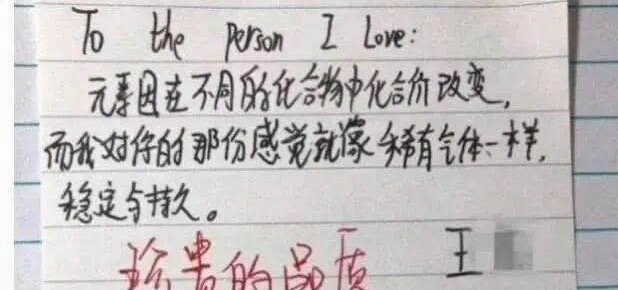 To the person I Love:
元素因在不同的化合物中化合价改变,
而我对你的那份感觉就像稀有气体一样,
稳定与持久。
珍贵的品质 王